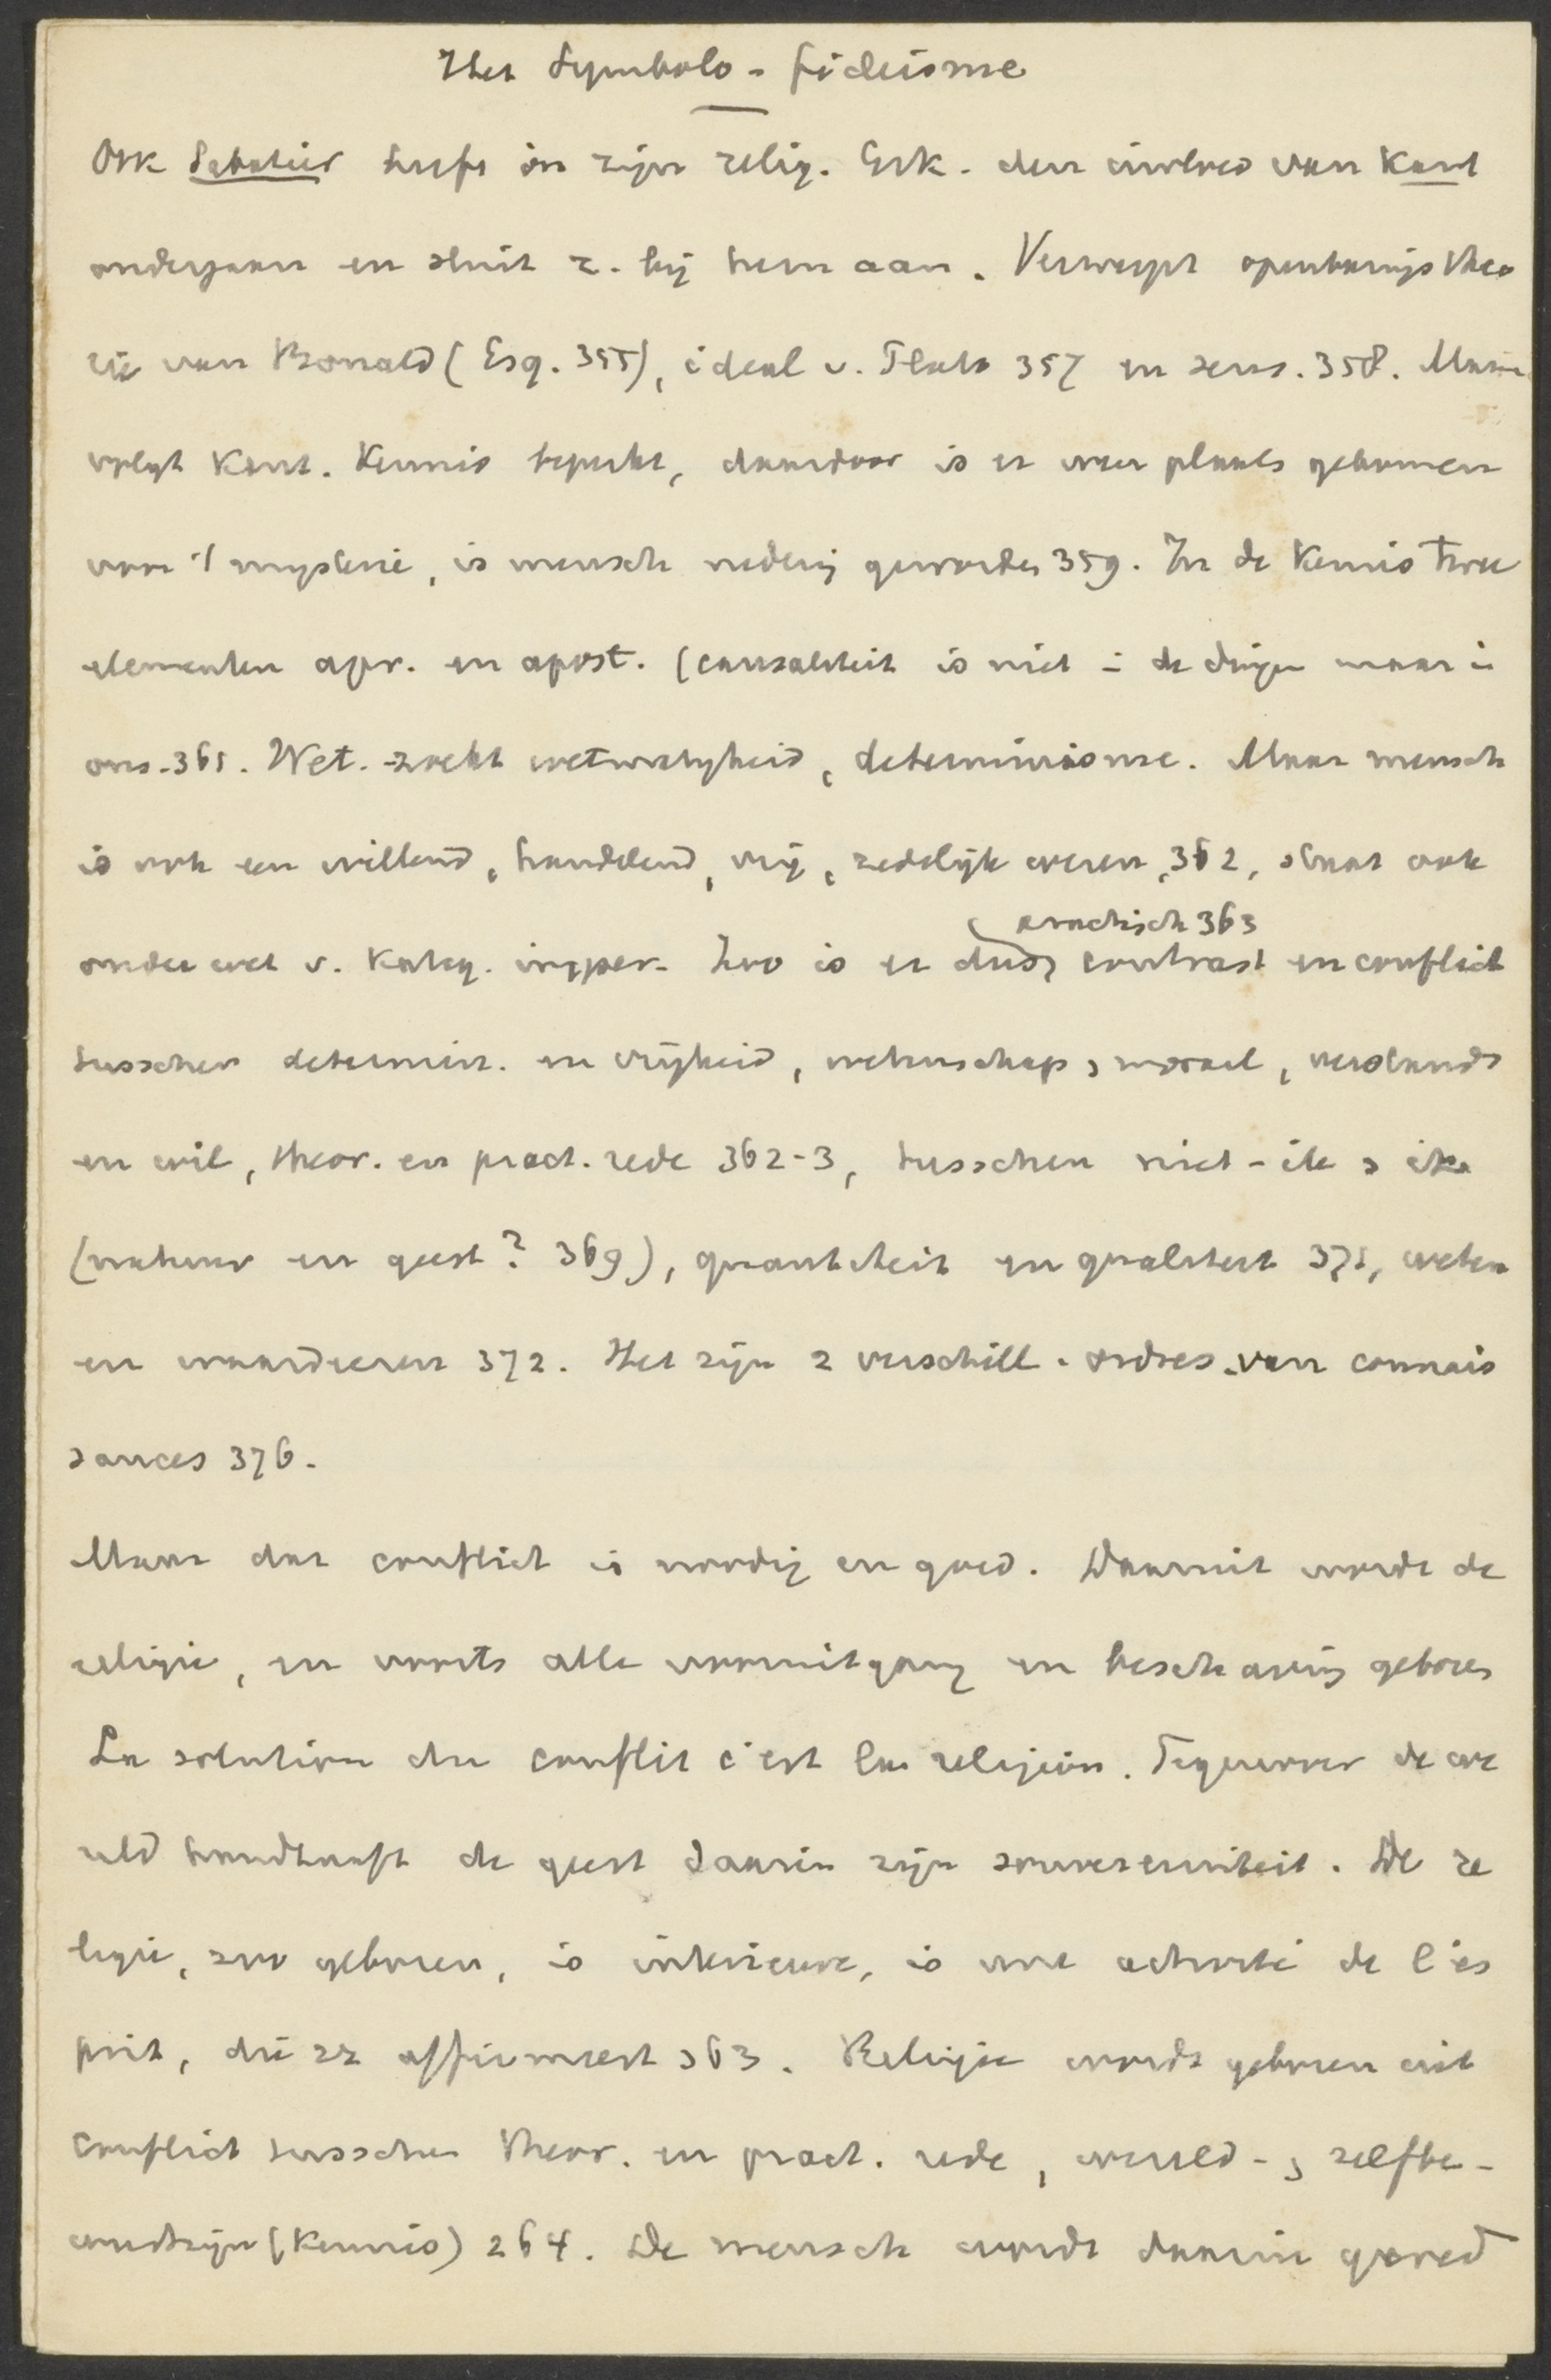 Het Symbolo-fideïsme
Ook Sabatier heeft in zijn relig. Erk. den invloed van Kant
ondergaan en sluit z. bij hem aan. Verwerpt openbaringstheo
rie van Bonald (Esq. 355), ideal v. Plato 357 en sens. 358. Maar
volgt Kant. Kennis beperkt, daardoor is er weer plaats gekomen
voor 't mysterie, is mensch nederig geworden 359. In de Kennis twee
elementen apr. en apost. (causaliteit is niet in de dingen maar in
ons. 361. Wet. zoekt wetmatigheid, determinisme. Maar mensch
is ook een willend, handelend, vrij, zedelijk wezen, 362, staat ook
praktisch 363
onder wet v. Kateg. imper. Zoo is er dus contrast en conflict
tusschen determin. en vrijheid, wetenschap, moraal, verstand
en wil, theor. en pract. rede 362-3, tusschen niet-ik , ik
(natuur en geest? 369), quantiteit en qualiteit 371, weten
en waardeeren 372. Het zijn 2 verschill. ordres van connais
sances 376.
Maar dat conflict is noodig en goed. Daaruit wordt de
religie, en voorts alle vooruitgang en beschaving geboren
La solution du conflit c'est la religion. Tegenover de we
reld handhaaft de geest daarin zijn souvereiniteit. De re
ligie, zoo geboren, is intérieure, is une activité de l'es
prit, die zz affirmeert 363. Religie wordt geboren uit
conflict tusschen theor. en pract. rede, wereld- , zelfbe-
wustzijn (Kennis) 264. De mensch wordt daarin gered